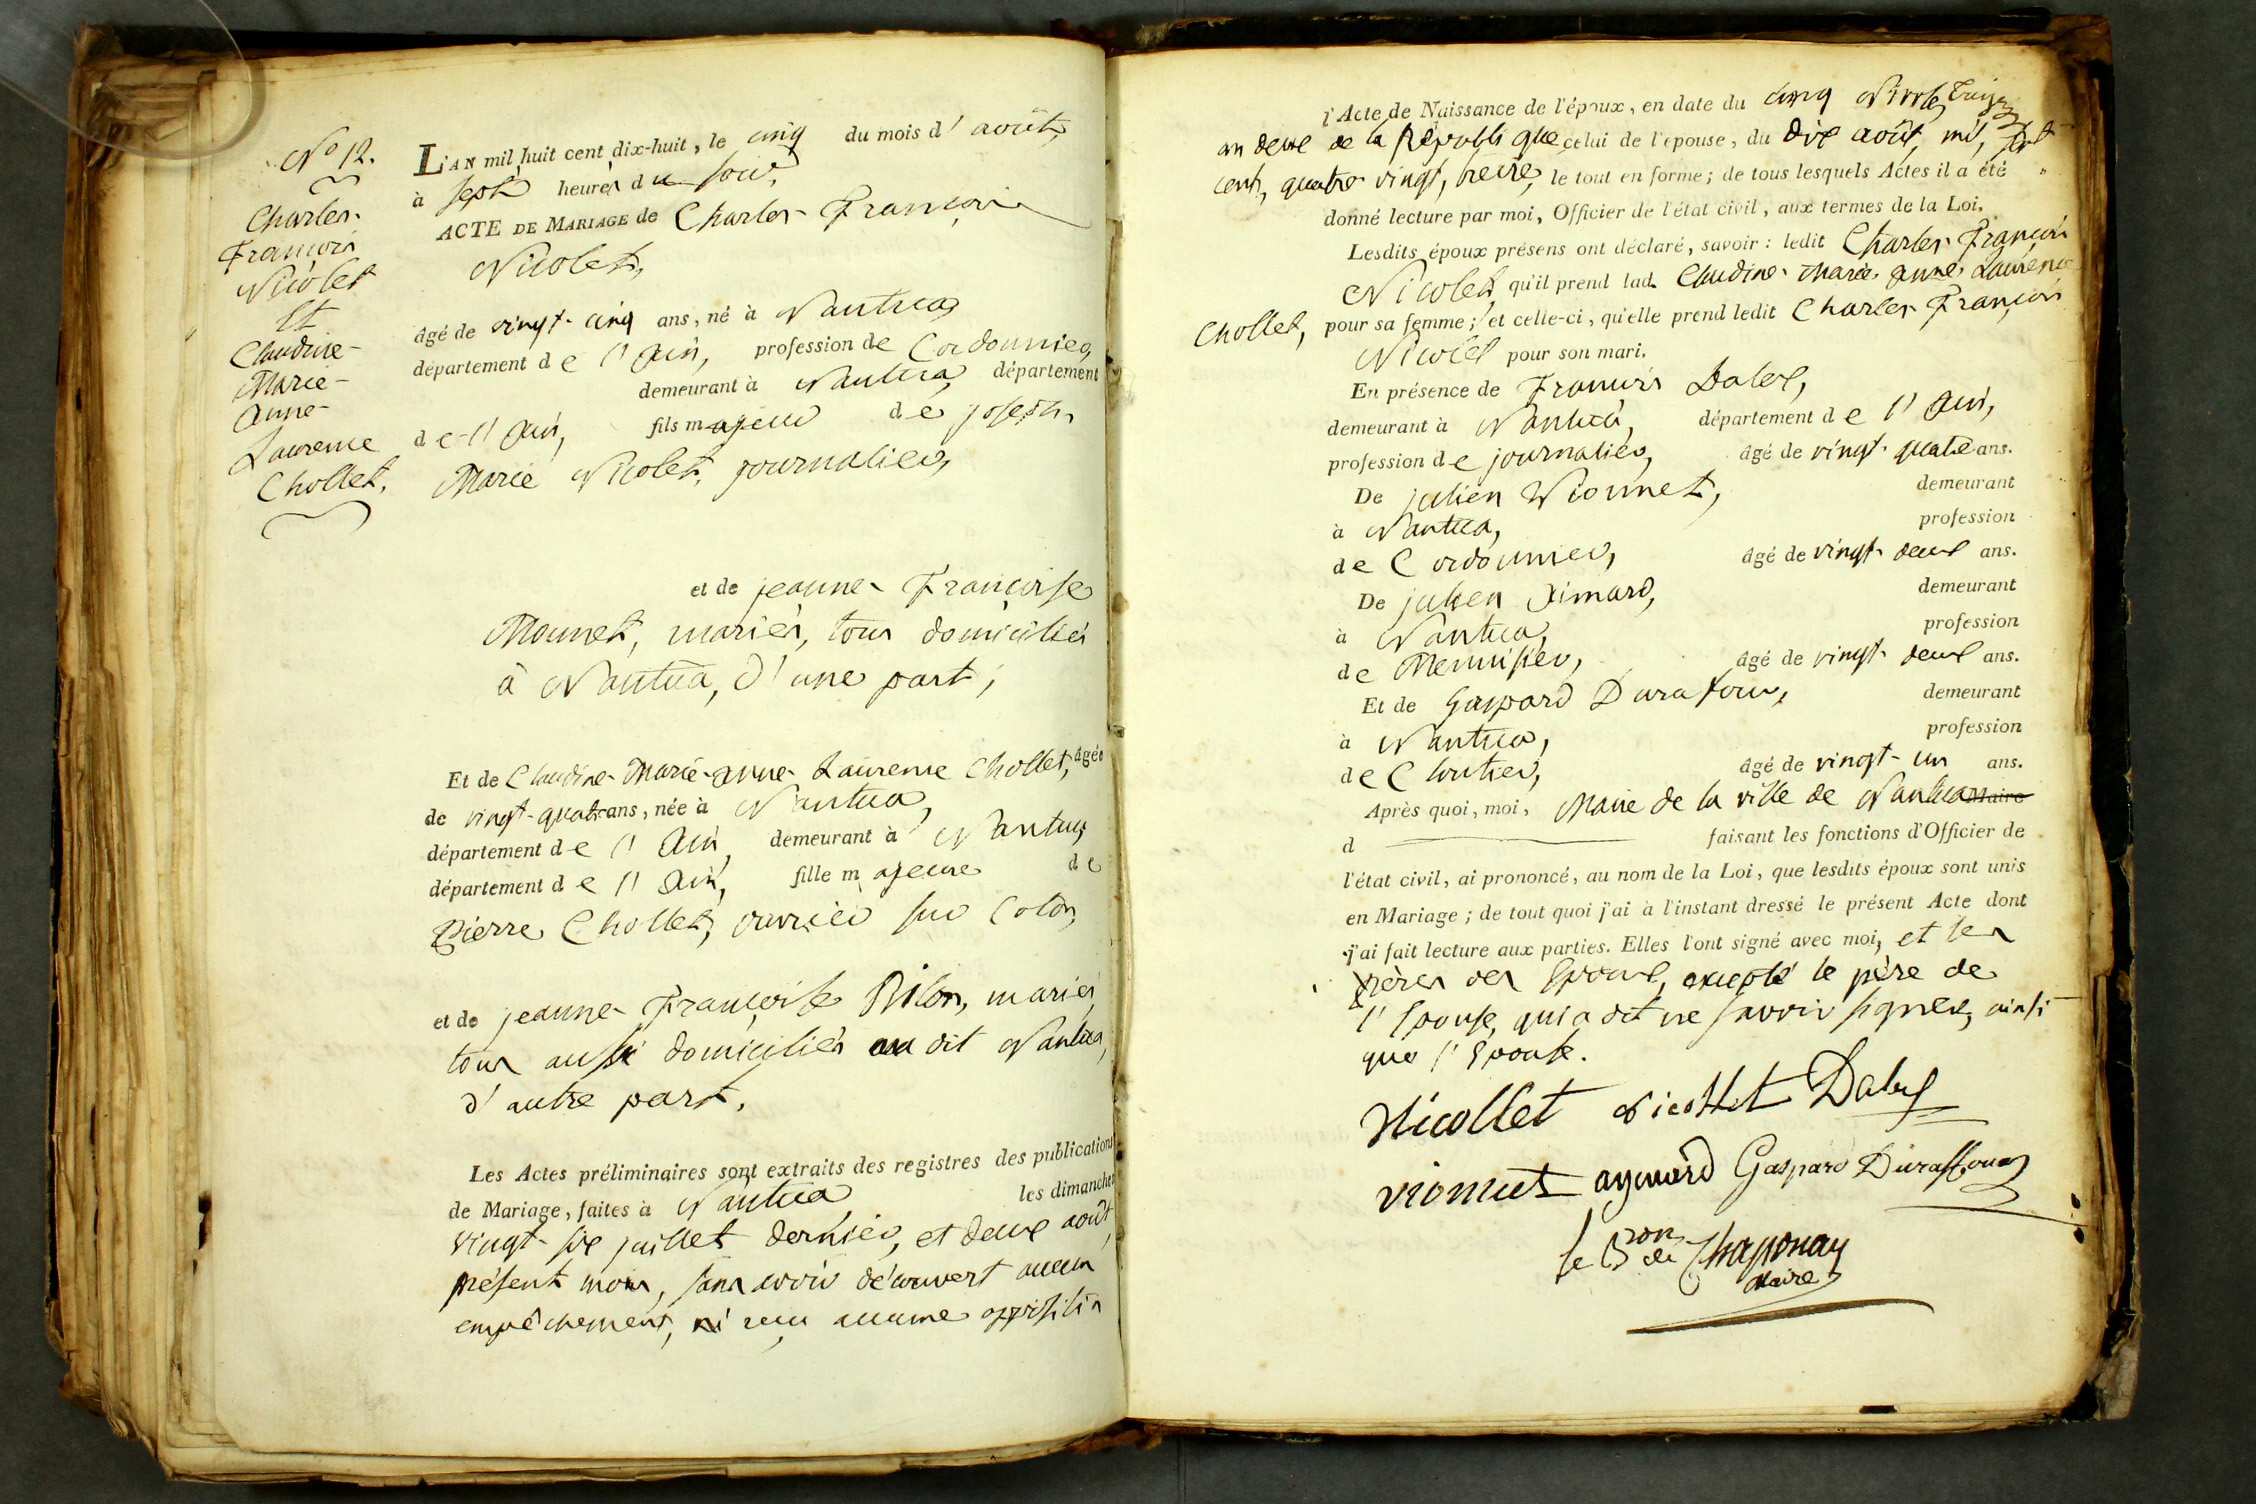 N° 12.
Charles-
François
Nicolet
Et
Claudine-
Marie-
Anne-
Laurence
Chollet.
L'AN mil huit cent dix-huit, le cinq du mois d'août,
à sept heures du soir,
ACTE DE MARIAGE de Charles-François
Nicolet,
âgé de vingt-cinq ans, né à Nantua,
département de l'Ain, profession de Cordonnier,
demeurant à Nantua, département
de l'Ain, fils majeur de joseph,
Marie Nicolet, journalier,
et de jeanne-Françoise
Monnet, mariés, tous domiciliés
à Nantua, d'une part;
Et de Claudine-Marie-anne-Laurence Chollet, âgée
de vingt-quatre ans, née à Nantua,
département de l'Ain, demeurant à Nantua,
département de l'Ain, fille majeure de
Pierre Chollet, ouvrier sur Coton,
et de jeanne-Françoise Bilon, mariés,
tous aussi domiciliés au dit Nantua,
d'autre part.
Les Actes préliminaires sont extraits des registres des publications
de Mariage, faites à Nantua, les dimanches
vingt-six juillet dernier, et deux août,
présent mois, sans avoir découvert aucun
empêchement, ni reçu aucune opposition
l'Acte de Naissance de l'époux, en date du cinq
an deux de la République, celui de l'épouse, du dix août, mil, sept
cent, quatre vingt, treize, le tout en forme; de tous lesquels Actes il a été
donné lecture par moi, Officier de l'état civil, aux termes de la Loi.
Lesdits époux présens ont déclaré, savoir: ledit Charles-François
Nicolet, qu'il prend lad. Claudine-Marie-anne-Laurence
Chollet, pour sa femme; et celle-ci, qu'elle prend ledit Charles-François
Nicolet pour son mari.
En présence de François Dalex,
demeurant à Nantua, département de l'Ain,
profession de journalier, âgé de vingt-quatre ans.
De julien Vionnet, demeurant
à Nantua, profession
de Cordonnier, âgé de vingt-deux ans.
De julien Aimard, demeurant
à Nantua, profession
de Menuisier, âgé de vingt-deux ans.
Et de Gaspard Durafour, demeurant
à Nantua, profession
de Cloutier, âgé de vingt-un ans.
Après quoi, moi, Maire de la ville de Nantua Maire
d faisant les fonctions d'Officier de
l'état civil, ai prononcé, au nom de la Loi, que lesdits époux sont unis
en Mariage; de tout quoi j'ai à l'instant dressé le présent Acte dont
j'ai fait lecture aux parties. Elles l'ont signé avec moi, et les
pères des Epoux, excepté le père de
l'Epouse, qui a dit ne savoir signer, ainsi
que l'Epouse.
Nicollet Nicollet Dalex
vionnet aymard Gaspard Duraffour
le Bon de Chaponay
Maire